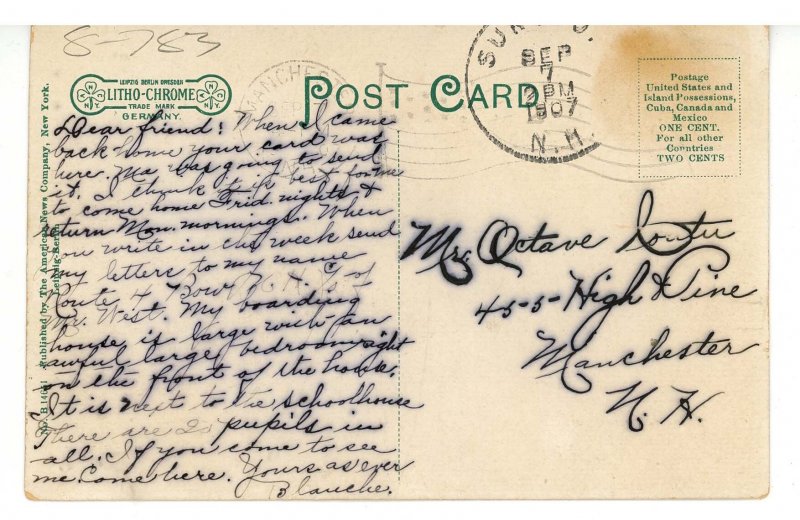 8-783
LEIPZIG BERLIN DRESDEN
LITHO-CHROME
TRADE MARK
GERMANY.
N Y
N Y
POST CARD
MANCHEST
SEP
7
2 PM
1907
N.H.
Postage
United States and
Island Possessions,
Cuba, Canada and
Mexico
ONE CENT.
For all other
Countries
TWO CENTS
Published by The American News Company, New York.
Leipzig-Berlin
Dear friend: When I came
back home your card was
here. Ma was going to send
it. I think it is best for me
to come home Frid. nights &
return Mon. mornings. When
you write in the week send
my letters to my name
Route 4 Bow N. H. % of
Mr. West. My boarding
house is large with an
awful large bedroom right
on the front of the house.
It is next to the schoolhouse
There are 2 pupils in
all. If you come to see
me come here. Yours as ever
Blanche.
Mr. Octave
455 High & Pine
Manchester
N. H.